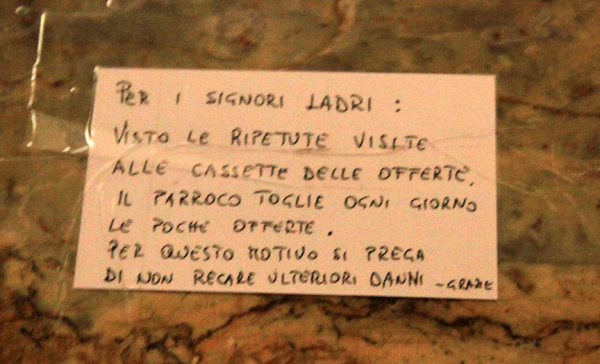 PER I SIGNORI LADRI :
VISTO LE RIPETUTE VISITE
ALLE CASSETTE DELLE OFFERTE,
IL PARROCO TOGLIE OGNI GIORNO
LE POCHE OFFERTE.
PER QUESTO MOTIVO SI PREGA
DI NON RECARE ULTERIORI DANNI - GRAZIE